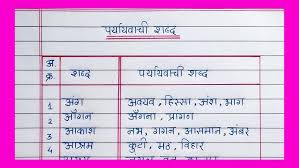 पर्यायवाची शब्द
अ.क्र. शब्द पर्यायवाची शब्द
1 अंग अवयव, हिस्सा, अंश, भाग
2 आँगन अँगना, प्रांगण
3 आकाश नभ, गगन, आसमान, अंबर
4 आश्रम कुटी, मठ, विहार